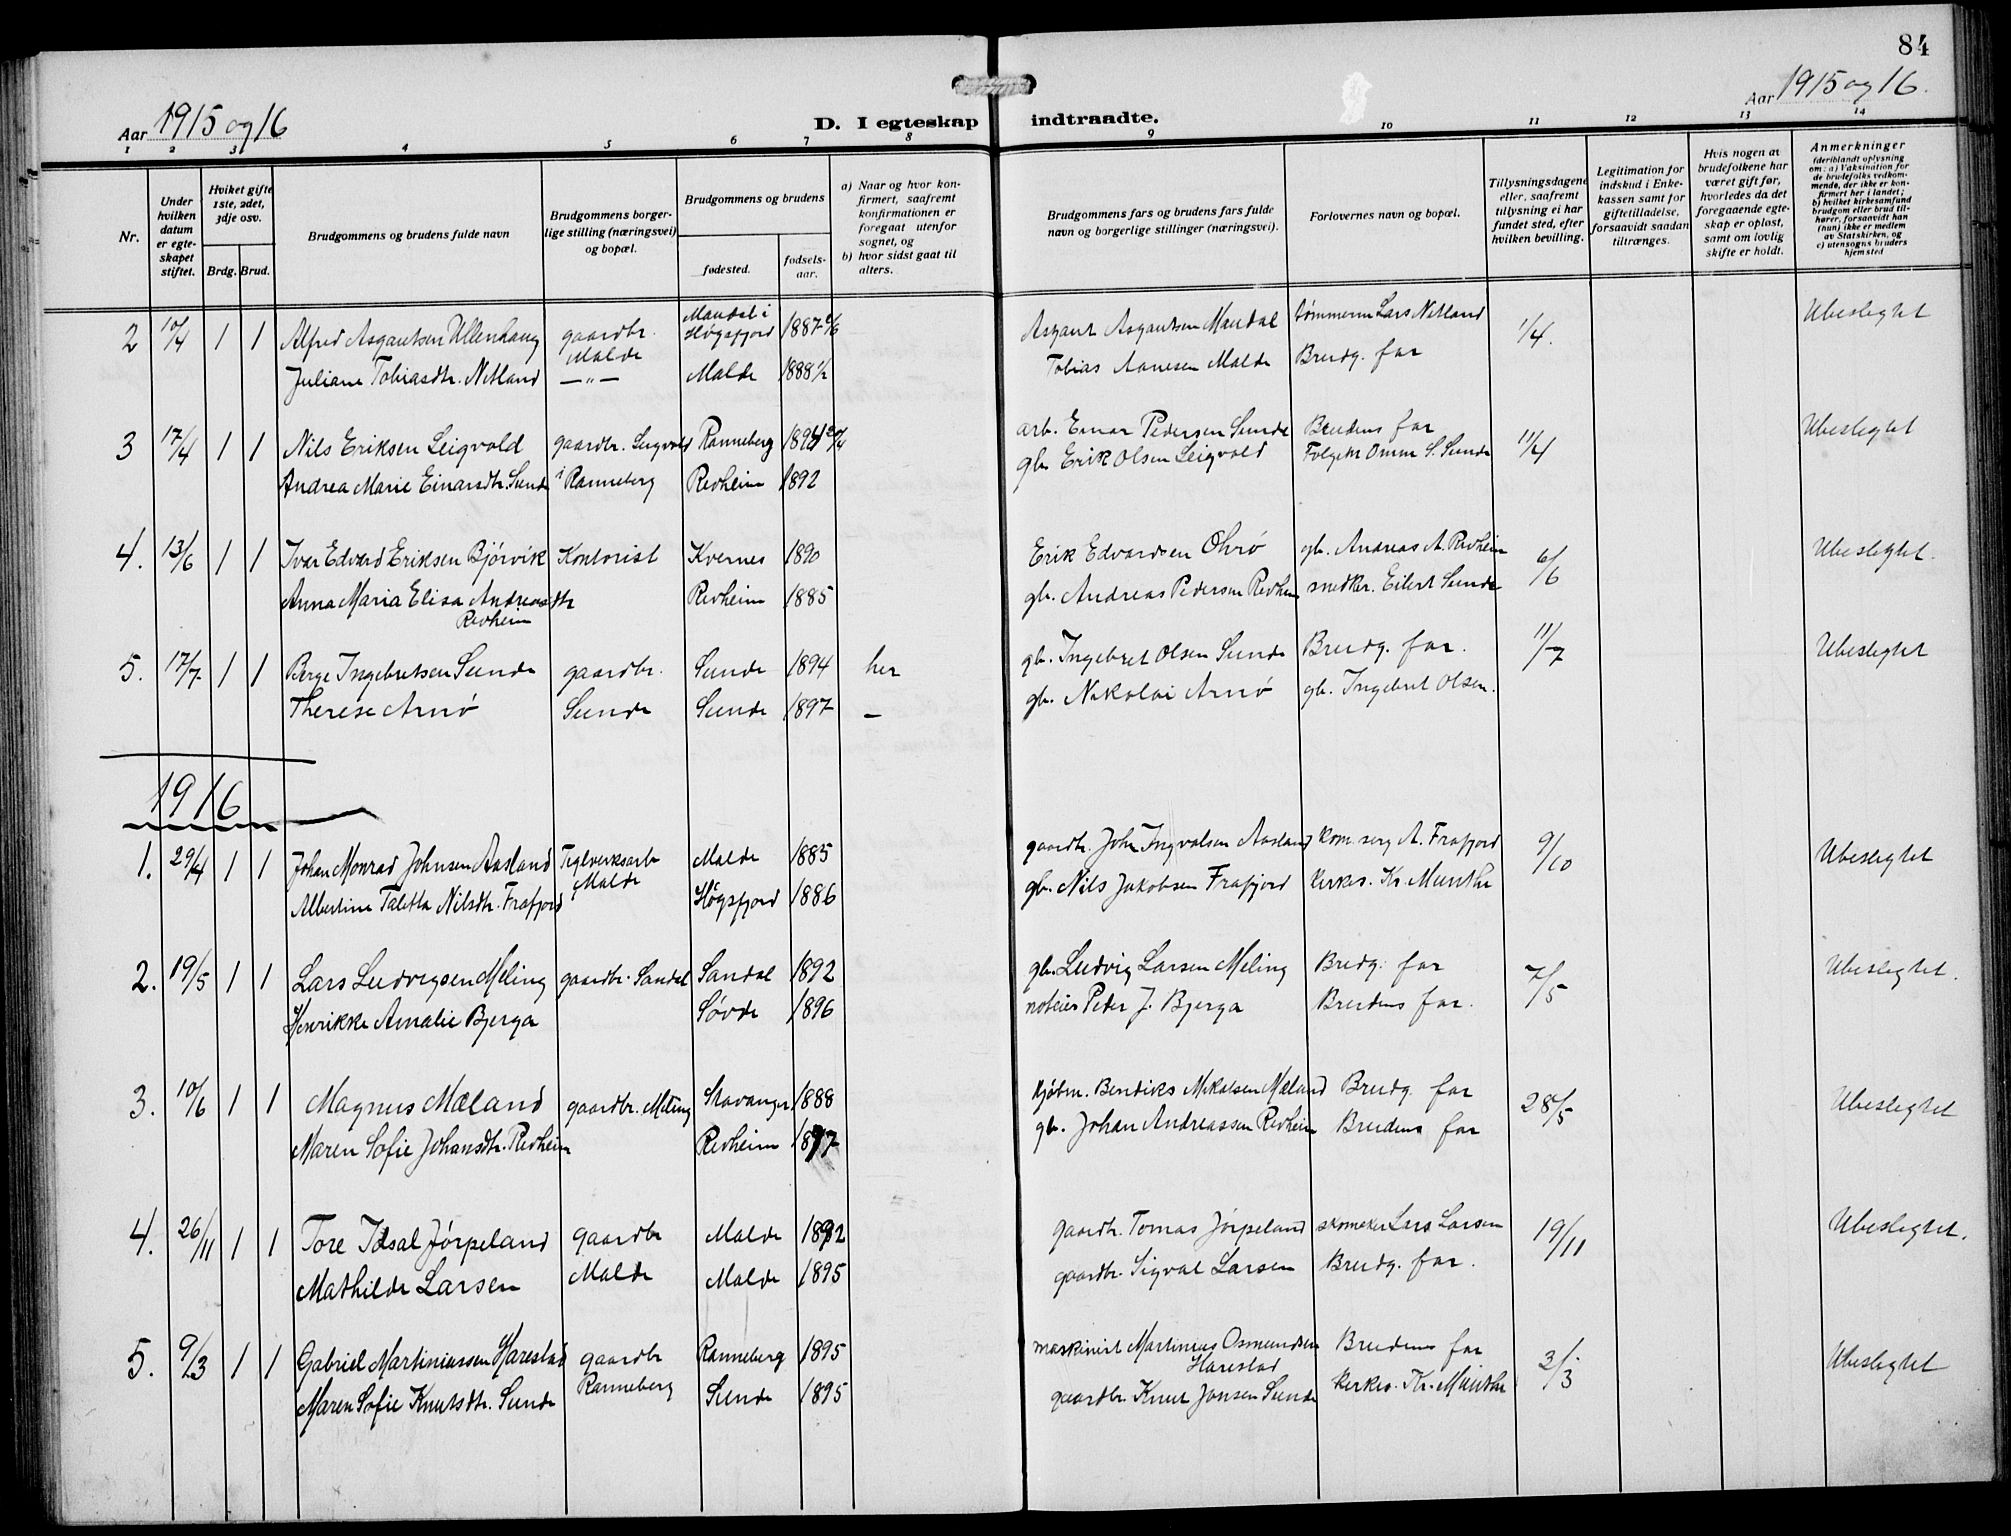 84
Aar 1915 og 16
D. I egteskap indtraadte.
Aar 1915 og 16.
1 2 3 4 5 6 7 8 9 10 11 12 13 14
Nr.
Under hvilken datum er egteskapet stiftet.
Hviket gifte 1ste, 2det, 3dje osv.
Brdg. Brud.
Brudgommens og brudens fulde navn
Brudgommens borgerlige stilling (næringsvei) og bopæl.
Brudgommens og brudens
fødested.
fødselsaar.
a) Naar og hvor konfirmert, saafremt konfirmationen er foregaat utenfor sognet, og
b) hvor sidst gaat til alters.
Brudgommens fars og brudens fars fulde navn og borgerlige stillinger (næringsvei).
Forlovernes navn og bopæl.
Tillysningsdagene eller, saafremt tillysning ei har fundet sted, efter hvilken bevilling.
Legitimation for indskud i Enkekassen samt for giftetilladelse, forsaavidt saadan tiltrænges.
Hvis nogen at brudefolkene har været gift før, hvorledes da det foregaaende egteskap er opløst, samt om lovlig skifte er holdt.
Anmerkninger
(deriblandt oplysning om: a) Vaksination for de brudefolks vedkommende, der ikke er konfirmert her i landet; b) hvilket kirkesamfund brudgom eller brud tilhører, forsaavidt han (hun) ikke er medlem av Statskirken, og c) utensogns bruders hjemsted
2 10/4 1 1 Alfred Asgautsen Ullenhaug gaardbr. Malde Mandal i Høgsfjord 1887 Asgaut Asgautsen Mandal tømmerm Lars Netland 1/4. Ubeslegtet
Juliane Tobiasdtr. Netland —"— Malde 1888 1/2 Tobias Aanesen Malde Brudg. far
3 17/4 1 1 Nils Eriksen Leigvold gaardbr. Leigvold Ranneberg 1894 arb. Einar Pedersen Sunde Brudens far 11/4 Ubeslegtet
Andrea Marie Einarsdtr. Sunde i Ranneberg Revheim 1892 gb. Erik Olsen Leigvold Følgem Omm S. Sunde
4. 13/6 1 1 Ivar Edvard Eriksen Bjørvik Kontorist Kvernes 1890 Erik Edvardsen Ohrø gb. Andreas A. Revheim 6/6 Ubeslegtet.
Anna Maria Elisa Andreasdtr Revheim Revheim 1885 gb. Andreas Pedersen Revheim snedker. Eilert Sunde
5. 17/7 1 1 Berge Ingebretsen Sunde gaardbr. Sunde 1894 her gb. Ingebret Olsen Sunde Brudg. far. 11/7 Ubeslegtet
Therese Arnø Sunde Sunde 1897 — gb. Nikolai Arnø gb. Ingebret Olsen.
1916
1. 29/4 1 1 Johan Monrad Johnsen Aasland Teglverksarb Malde Malde 1885 gaardb. John Ingvalsen Aasland kom. serg A. Frafjord 9/10 Ubeslegtet
Albertine Taletta Nilsdtr. Frafjord Høgsfjord 1886 gb. Nils Jakobsen Frafjord kirkes. Kr. Munthe
2. 19/5 1 1 Lars Ludvigsen Meling gaardbr. Sandal Sandal 1892 gb. Ludvig Larsen Meling Bredg. far 7/5 Ubeslegtet.
Henrikke Amalie Bjerga Søvde 1896 noteier Peder J. Bjerga Brudens far.
3. 10/6 1 1 Magnus Mæland gaardbr. Meling Stavanger 1888 kjøbm. Bendiks Mikalsen Mæland Brudg. far 28/5 Ubeslegtet
Maren Sofie Johansdtr. Revheim Revheim 1897 gb. Johan Andreassen Revheim Brudens far
4. 26/11 1 1 Tore Idsal Jørpeland gaardbr Malde 1892 gaardbr. Tomas Jørpeland skomaker Lars Larsen 19/11 Ubeslegtet.
Mathilde Larsen Malde Malde 1895 gaardbr. Sigval Larsen Brudg. far.
5. 9/3 1 1 Gabriel Martiniussen Harestad gaardbr Ranneberg 1895 maskinist Martinius Osmundsen Harestad Brudens far 3/3 Ubeslegtet
Maren Sofie Knutsdtr. Sunde Ranneberg Sunde 1895 gaardbr. Knut Jonsen Sunde kirkes. Kr. Munthe